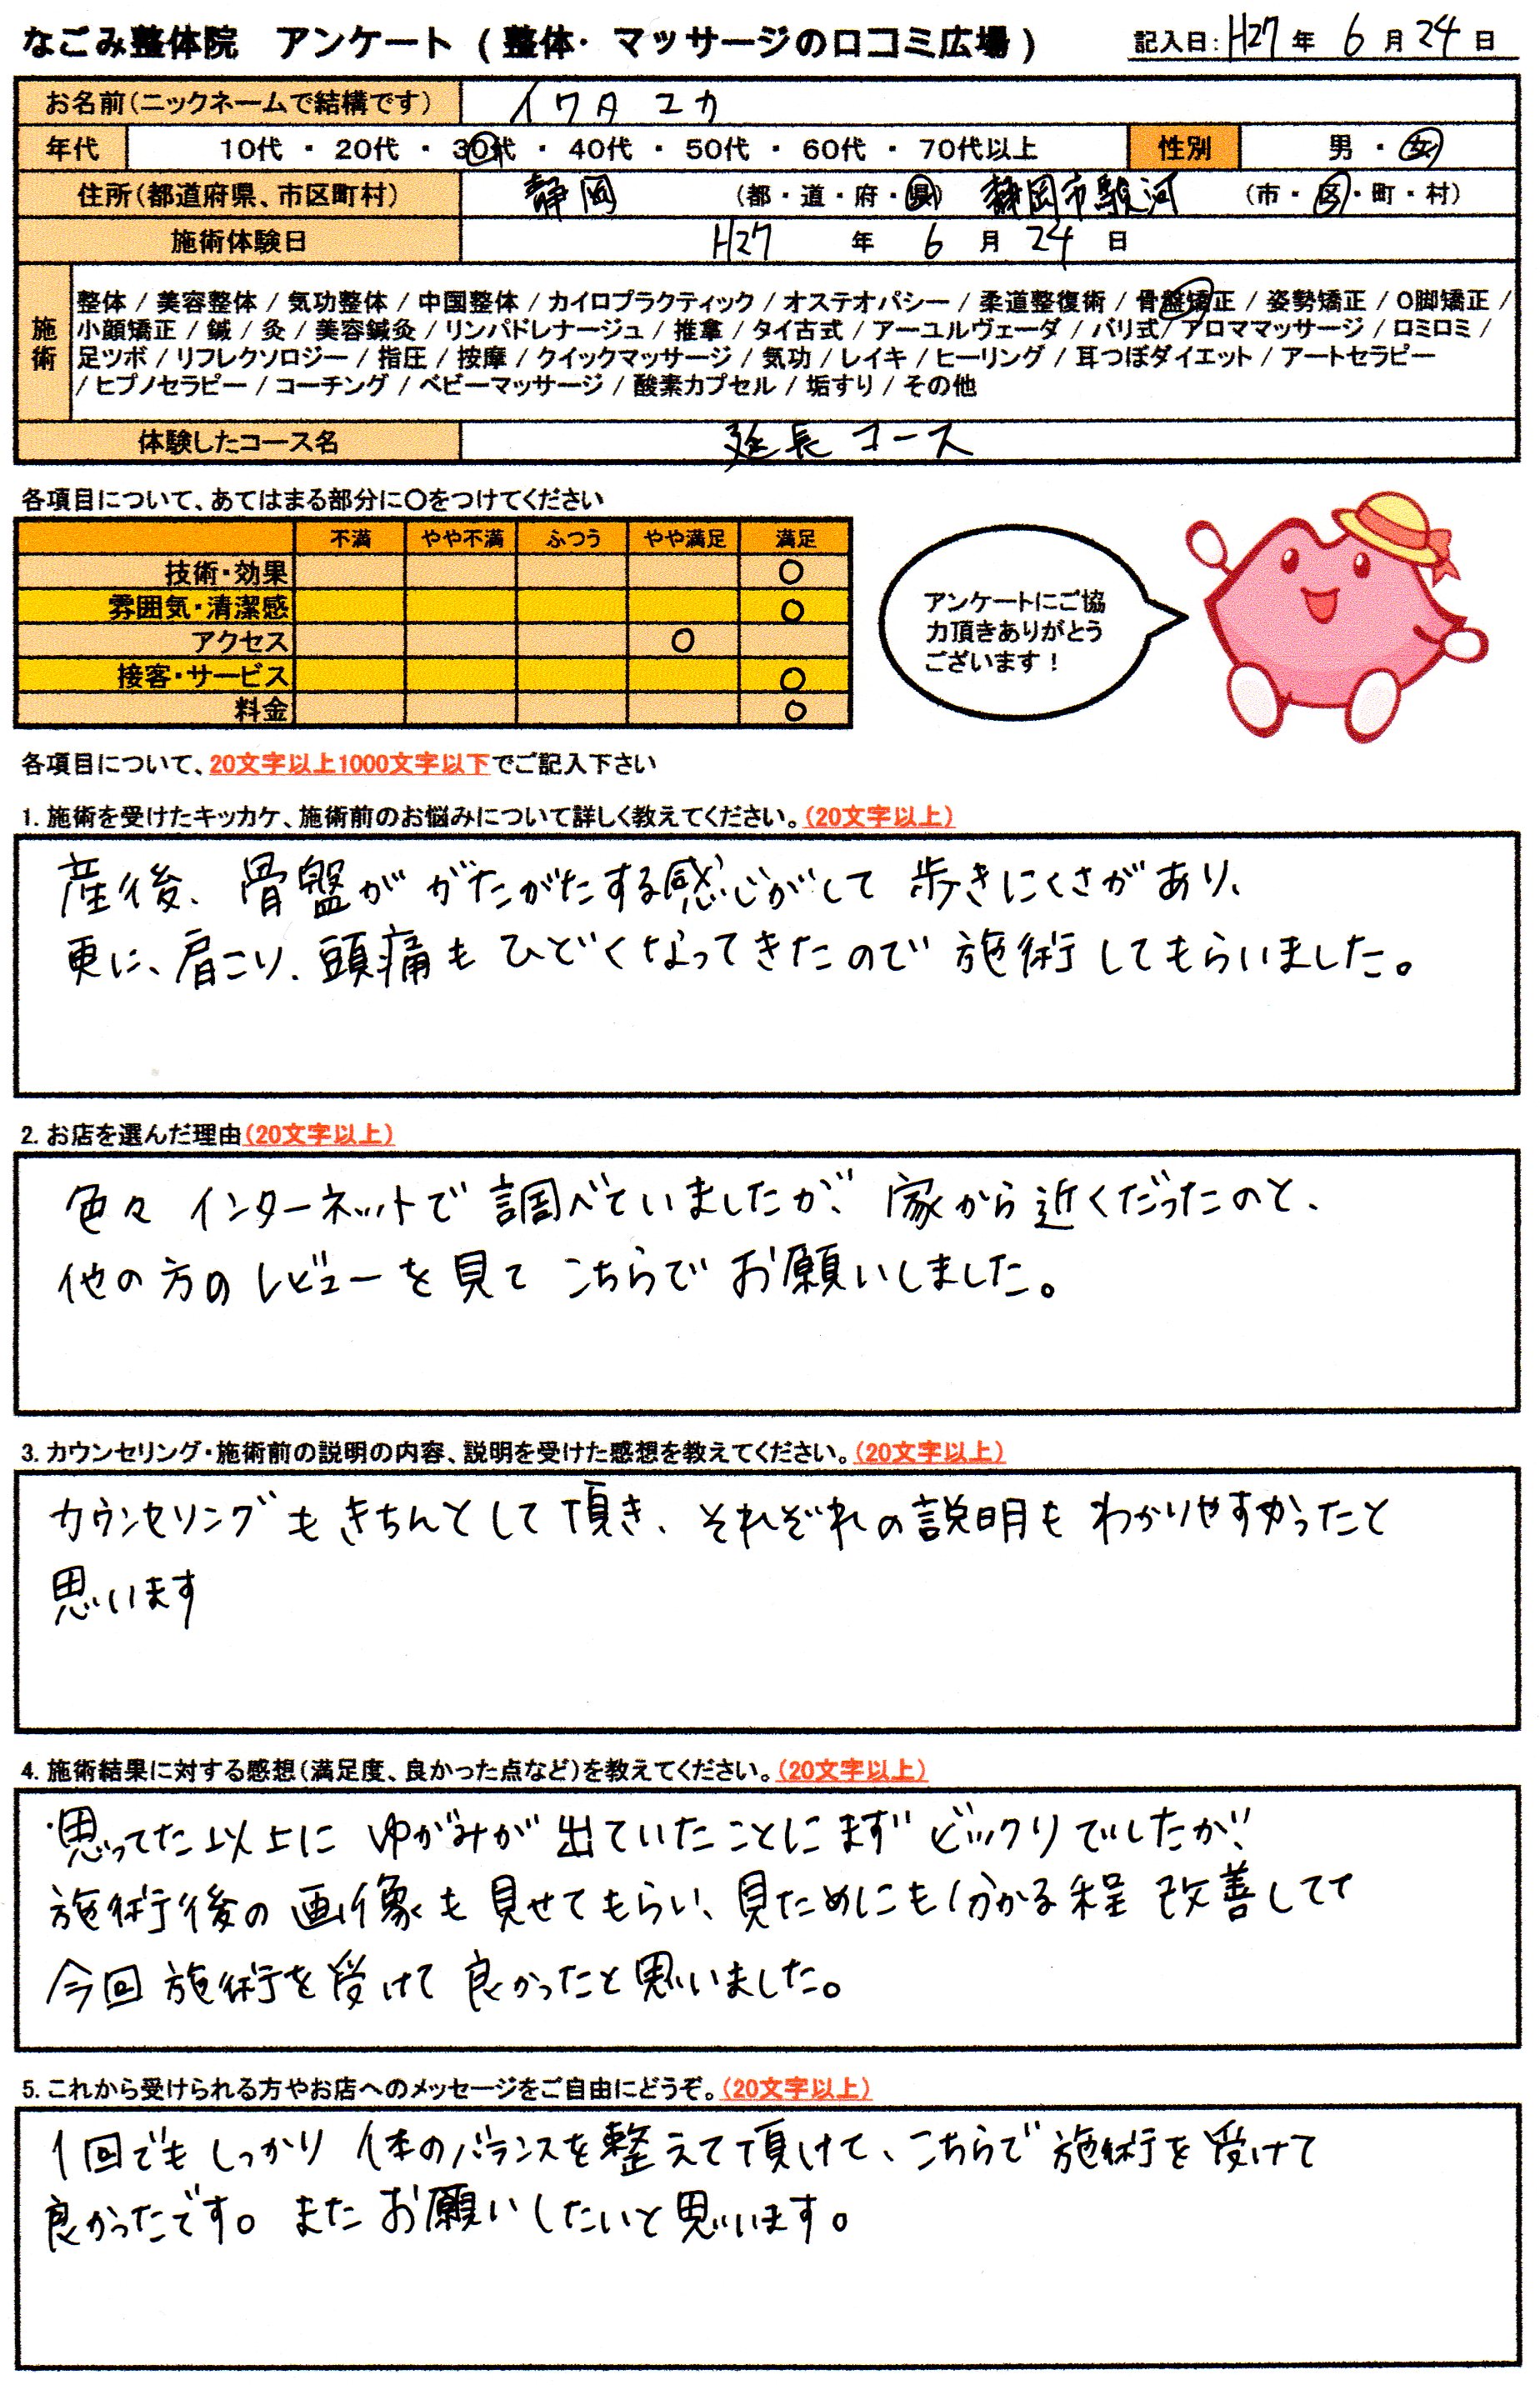 なごみ整体院 アンケート (整体・マッサージの口コミ広場) 記入日: H27年 6月24日
お名前(ニックネームで結構です) イワタ ユカ
年代 10代 ・ 20代 ・ 30代 ・ 40代 ・ 50代 ・ 60代 ・ 70代以上 性別 男 ・ 女
住所(都道府県、市区町村) 静岡 (都・道・府・県) 静岡市駿河 (市・区・町・村)
施術体験日 H27 年 6 月 24 日
施術
整体 / 美容整体 / 気功整体 / 中国整体 / カイロプラクティック / オステオパシー / 柔道整復術 / 骨盤矯正 / 姿勢矯正 / O脚矯正 /
小顔矯正 / 鍼 / 灸 / 美容鍼灸 / リンパドレナージュ / 推拿 / タイ古式 / アーユルヴェーダ / バリ式 / アロママッサージ / ロミロミ /
足ツボ / リフレクソロジー / 指圧 / 按摩 / クイックマッサージ / 気功 / レイキ / ヒーリング / 耳つぼダイエット / アートセラピー
/ ヒプノセラピー / コーチング / ベビーマッサージ / 酸素カプセル / 垢すり / その他
体験したコース名 延長コース
各項目について、あてはまる部分に○をつけてください
不満 やや不満 ふつう やや満足 満足
技術・効果 ○
雰囲気・清潔感 ○
アクセス ○
接客・サービス ○
料金 ○
アンケートにご協
力頂きありがとう
ございます!
各項目について、20文字以上1000文字以下でご記入下さい
1. 施術を受けたキッカケ、施術前のお悩みについて詳しく教えてください。(20文字以上)
産後、骨盤ががたがたする感じがして歩きにくさがあり、
更に、肩こり、頭痛もひどくなってきたので施術してもらいました。
2. お店を選んだ理由(20文字以上)
色々インターネットで調べていましたが、家から近くだったのと、
他の方のレビューを見てこちらでお願いしました。
3. カウンセリング・施術前の説明の内容、説明を受けた感想を教えてください。(20文字以上)
カウンセリングもきちんとして頂き、それぞれの説明もわかりやすかったと
思います
4. 施術結果に対する感想(満足度、良かった点など)を教えてください。(20文字以上)
思ってた以上にゆがみが出ていたことにまずビックリでしたが、
施術後の画像も見せてもらい、見ためにも分かる程改善してて
今回施術を受けて良かったと思いました。
5. これから受けられる方やお店へのメッセージをご自由にどうぞ。(20文字以上)
1回でもしっかり体のバランスを整えて頂けて、こちらで施術を受けて
良かったです。またお願いしたいと思います。